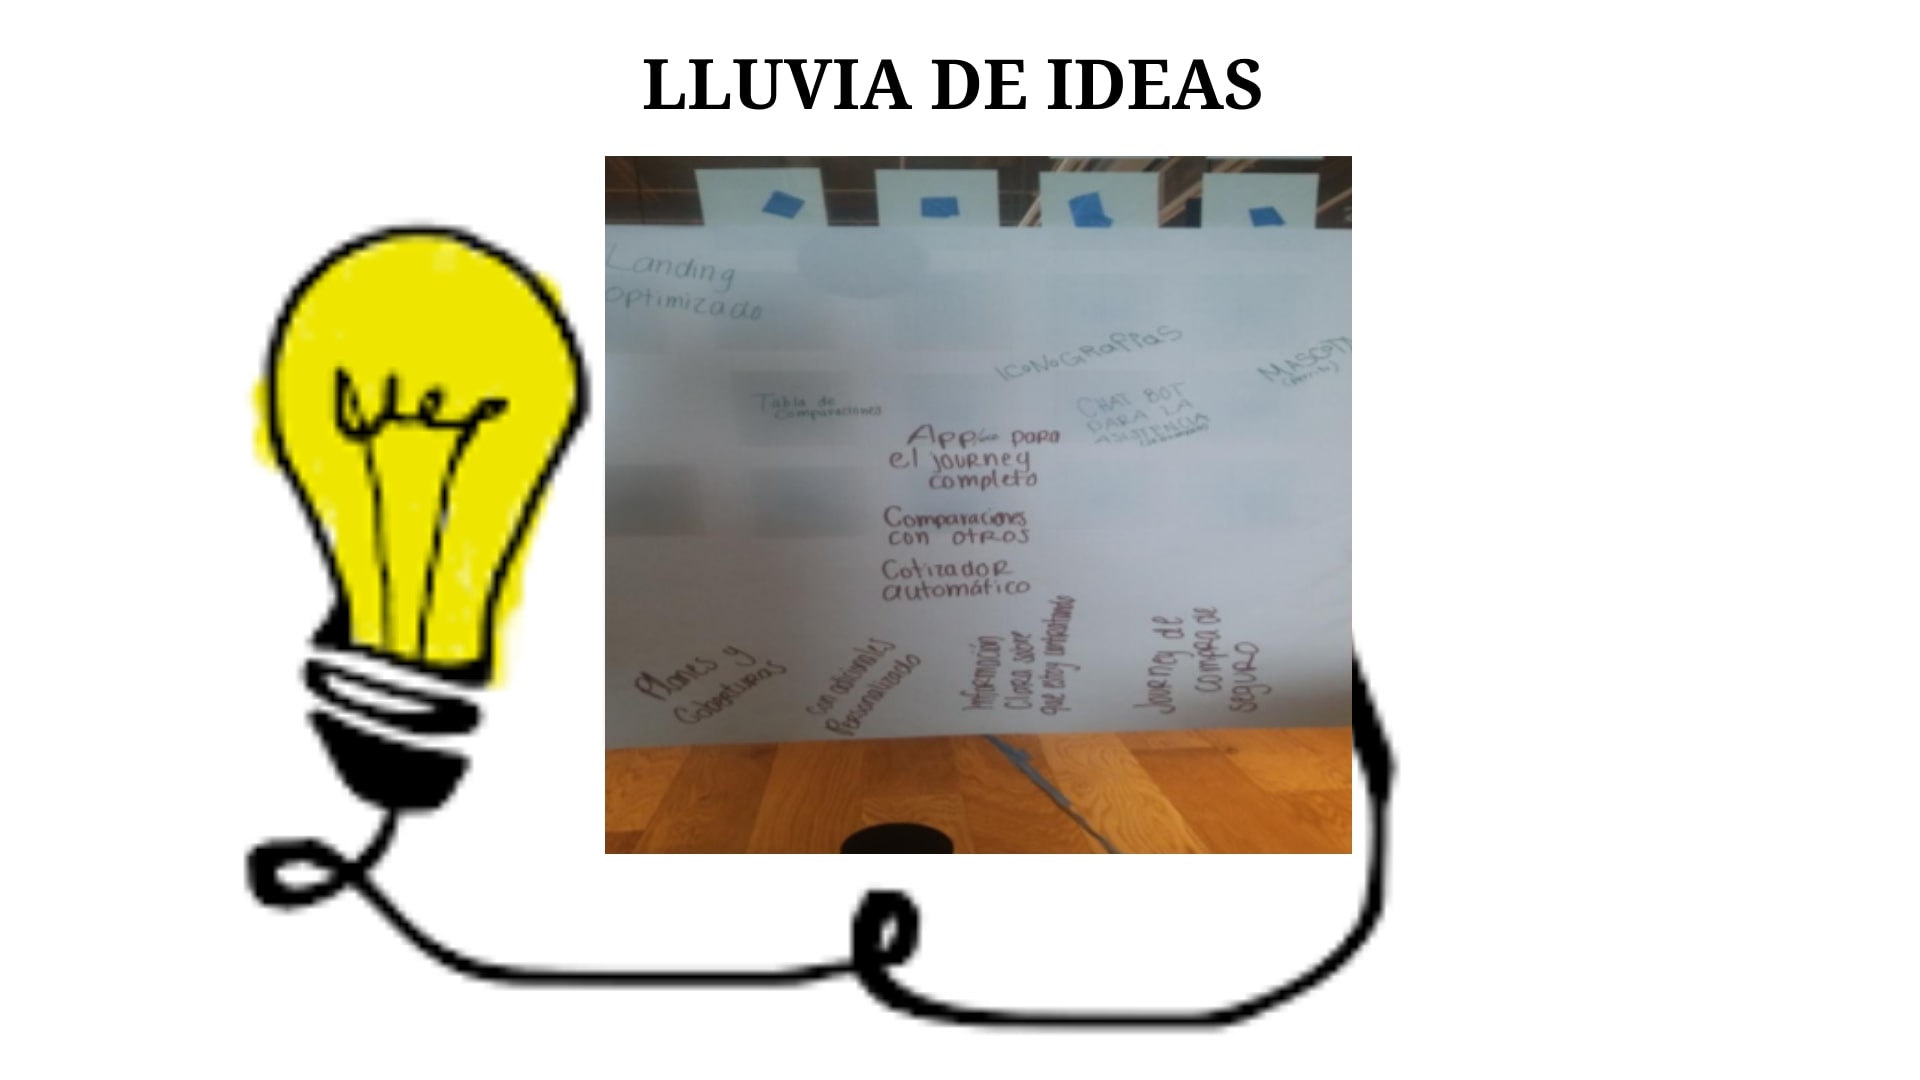 LLUVIA DE IDEAS
Landing
optimizado
ICONOGRAFIAS
MASCOT
Tabla de
Comparaciones
CHAT BOT
PARA LA
ASISTENCIA
App para
el journey
completo
Comparaciones
con otros
Cotizador
automático
Planes y
Coberturas
Con adicionales
Personalizado
Información
Clara sobre
que estoy contratando
Journey de
compra de
seguro